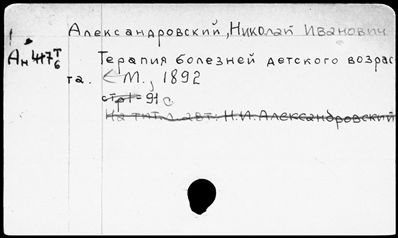 Александровский, Николай Иванович
Ан 417 Т/6
Терапия болезней детского возрас
та. М., 1892
стр 91 с
На тит. л. авт.: Н.И. Александровский